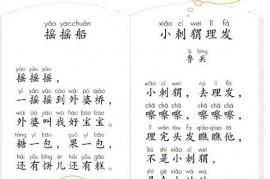 yáo yao chuán
摇摇船
yáo yáo yáo
摇摇摇，
yì yáo yáo dào wài pó qiáo
一摇摇到外婆桥，
wài pó jiào wǒ hǎo bǎo bao
外婆叫我好宝宝。
táng yì bāo guǒ yì bāo
糖一包，果一包，
hái yǒu bǐng ér hái yǒu gāo
还有饼儿还有糕。
xiǎo cì wei lǐ fà
小刺猬理发
lǔ bīng
鲁兵
xiǎo cì wei qù lǐ fà
小刺猬，去理发，
chā chā chā chā chā chā
嚓嚓嚓，嚓嚓嚓，
lǐ wán tóu fà qiáo qiao tā
理完头发瞧瞧他，
bú shì xiǎo cì wei
不是小刺猬，